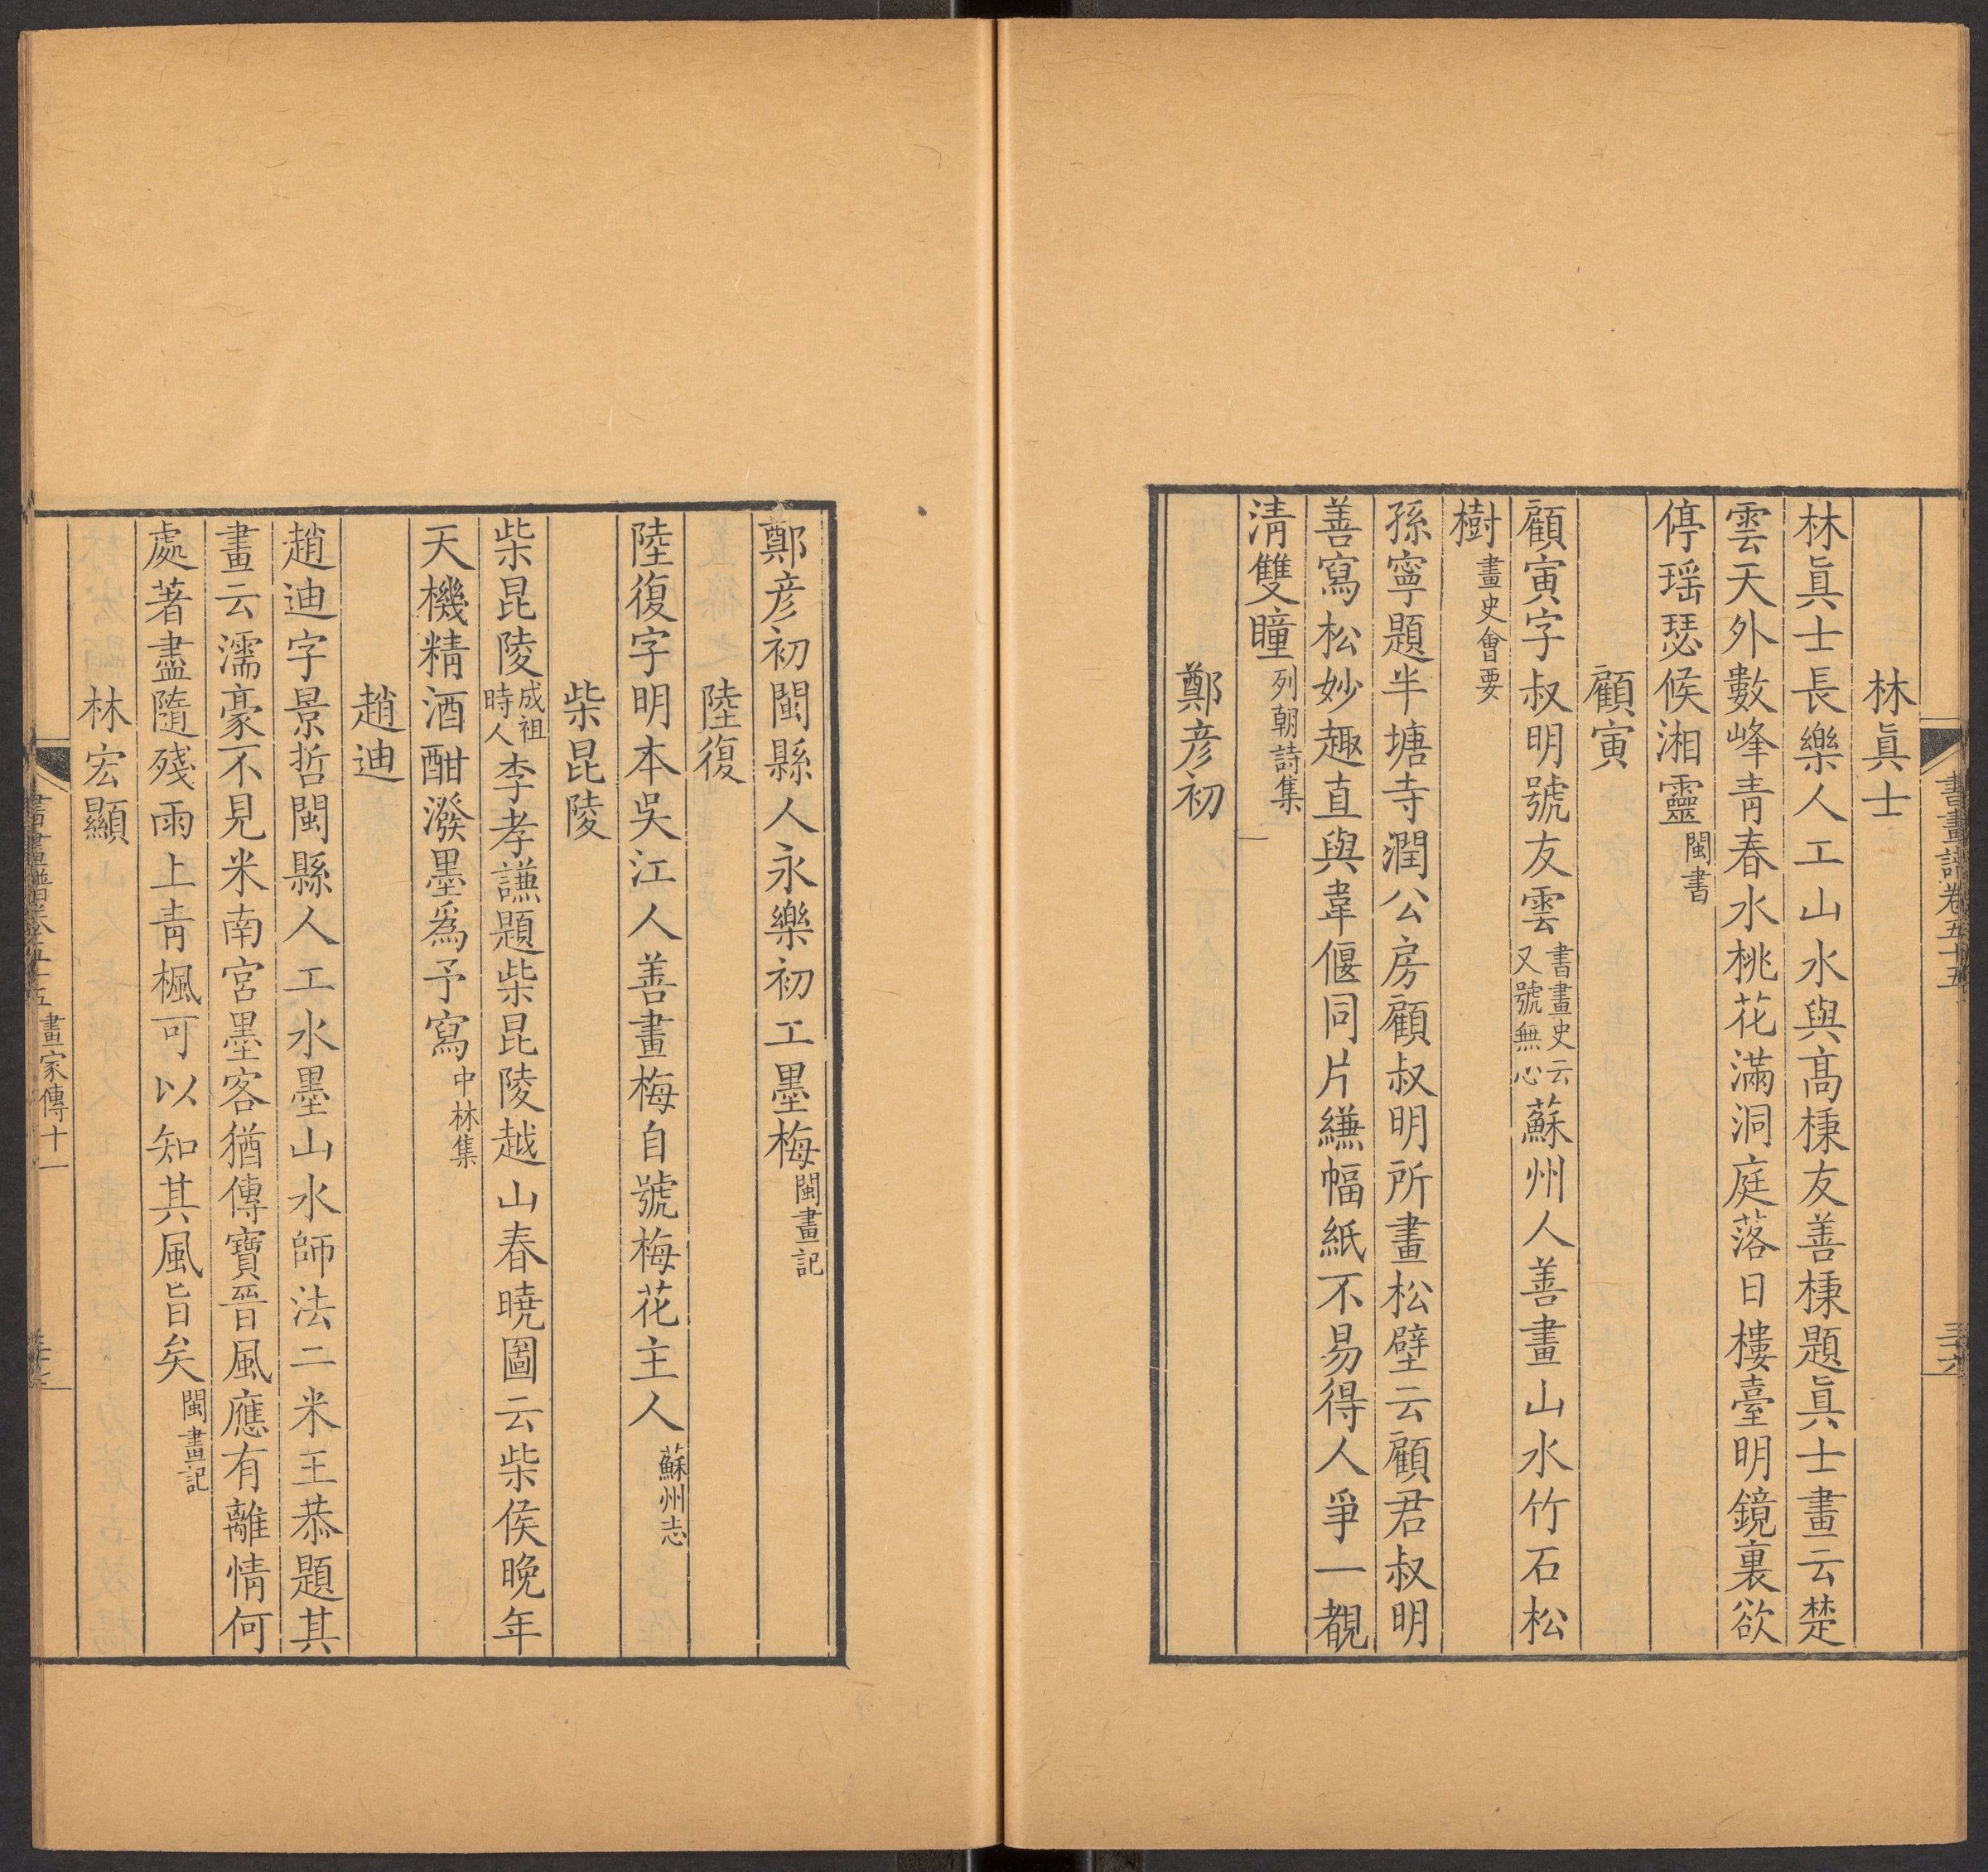 書畫譜卷五十五 三十六
林眞士
林眞士長樂人工山水與高棅友善棅題眞士畫云楚
雲天外數峰青春水桃花滿洞庭落日樓臺明鏡裏欲
停瑶瑟候湘靈閩書
顧寅
顧寅字叔明號友雲書畫史云又號無心蘇州人善畫山水竹石松
樹畫史會要
孫寧題半塘寺潤公房顧叔明所畫松壁云顧君叔明
善寫松妙趣直與韋偃同片縑幅紙不易得人爭一覩
淸雙瞳列朝詩集
鄭彦初
鄭彦初閩縣人永樂初工墨梅閩畫記
陸復
陸復字明本吳江人善畫梅自號梅花主人蘇州志
柴昆陵
柴昆陵成祖時人李孝謙題柴昆陵越山春曉圖云柴侯晚年
天機精酒酣潑墨爲予寫中林集
趙迪
趙迪字景哲閩縣人工水墨山水師法二米王恭題其
畫云濡豪不見米南宮墨客猶傳寶晉風應有離情何
處著盡隨殘雨上青楓可以知其風旨矣閩畫記
林宏顯
書畫譜卷五十五 畫家傳十一